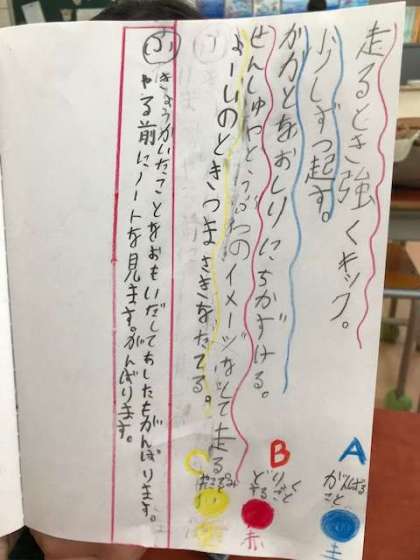 走るとき強くキック。
少しずつ起す。
かかとをおしりにちかずける。
せんしゅやどうぶつのイメージをして走る
よーいのときつまさきをたてる。
ふ
きょうかいたことをおもいだしてあしたもがんばります。
やる前にノートを見ます。がんばります。
A
がんばる
こと
B
どりょく
すること
赤